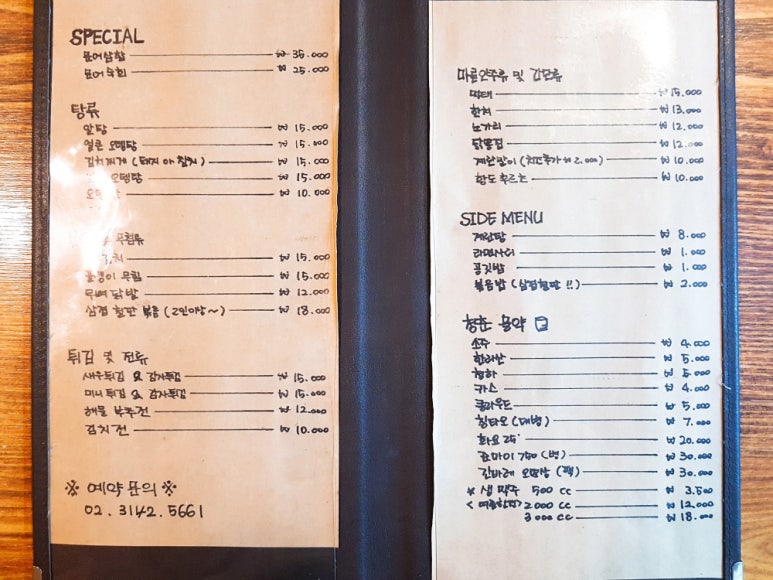 SPECIAL
문어삼합 ₩ 35.000
문어숙회 ₩ 25.000
탕류
알탕 ₩ 15.000
얼큰 오뎅탕 ₩ 15.000
김치찌개 (돼지 or 참치) ₩ 15.000
오뎅탕 ₩ 15.000
₩ 10.000
무침류
₩ 15.000
골뱅이 무침 ₩ 15.000
무뼈 닭발 ₩ 12.000
삼겹 철판 볶음 (2인이상~) ₩ 18.000
튀김 및 전류
새우튀김 & 감자튀김 ₩ 15.000
미니튀김 & 감자튀김 ₩ 15.000
해물 부추전 ₩ 12.000
김치전 ₩ 10.000
※ 예약문의 ※
02. 3142. 5661
마른안주류 및 간단류
먹태 ₩ 15.000
한치 ₩ 13.000
노가리 ₩ 12.000
닭똥집 ₩ 12.000
계란말이 (치즈추가 ₩ 2.000) ₩ 10.000
황도 후르츠 ₩ 10.000
SIDE MENU
계란탕 ₩ 8.000
라면사리 ₩ 1.000
공깃밥 ₩ 1.000
볶음밥 (삼겹철판!!) ₩ 2.000
청춘 물약
소주 ₩ 4.000
한라산 ₩ 5.000
청하 ₩ 5.000
카스 ₩ 4.000
클라우드 ₩ 5.000
칭타오 (대병) ₩ 7.000
화요 25˚ ₩ 20.000
750 (병) ₩ 30.000
간바레 오또상 (팩) ₩ 30.000
생맥주 500 cc ₩ 3.500
<여름한정> 2000 cc ₩ 12.000
3000 cc ₩ 18.000